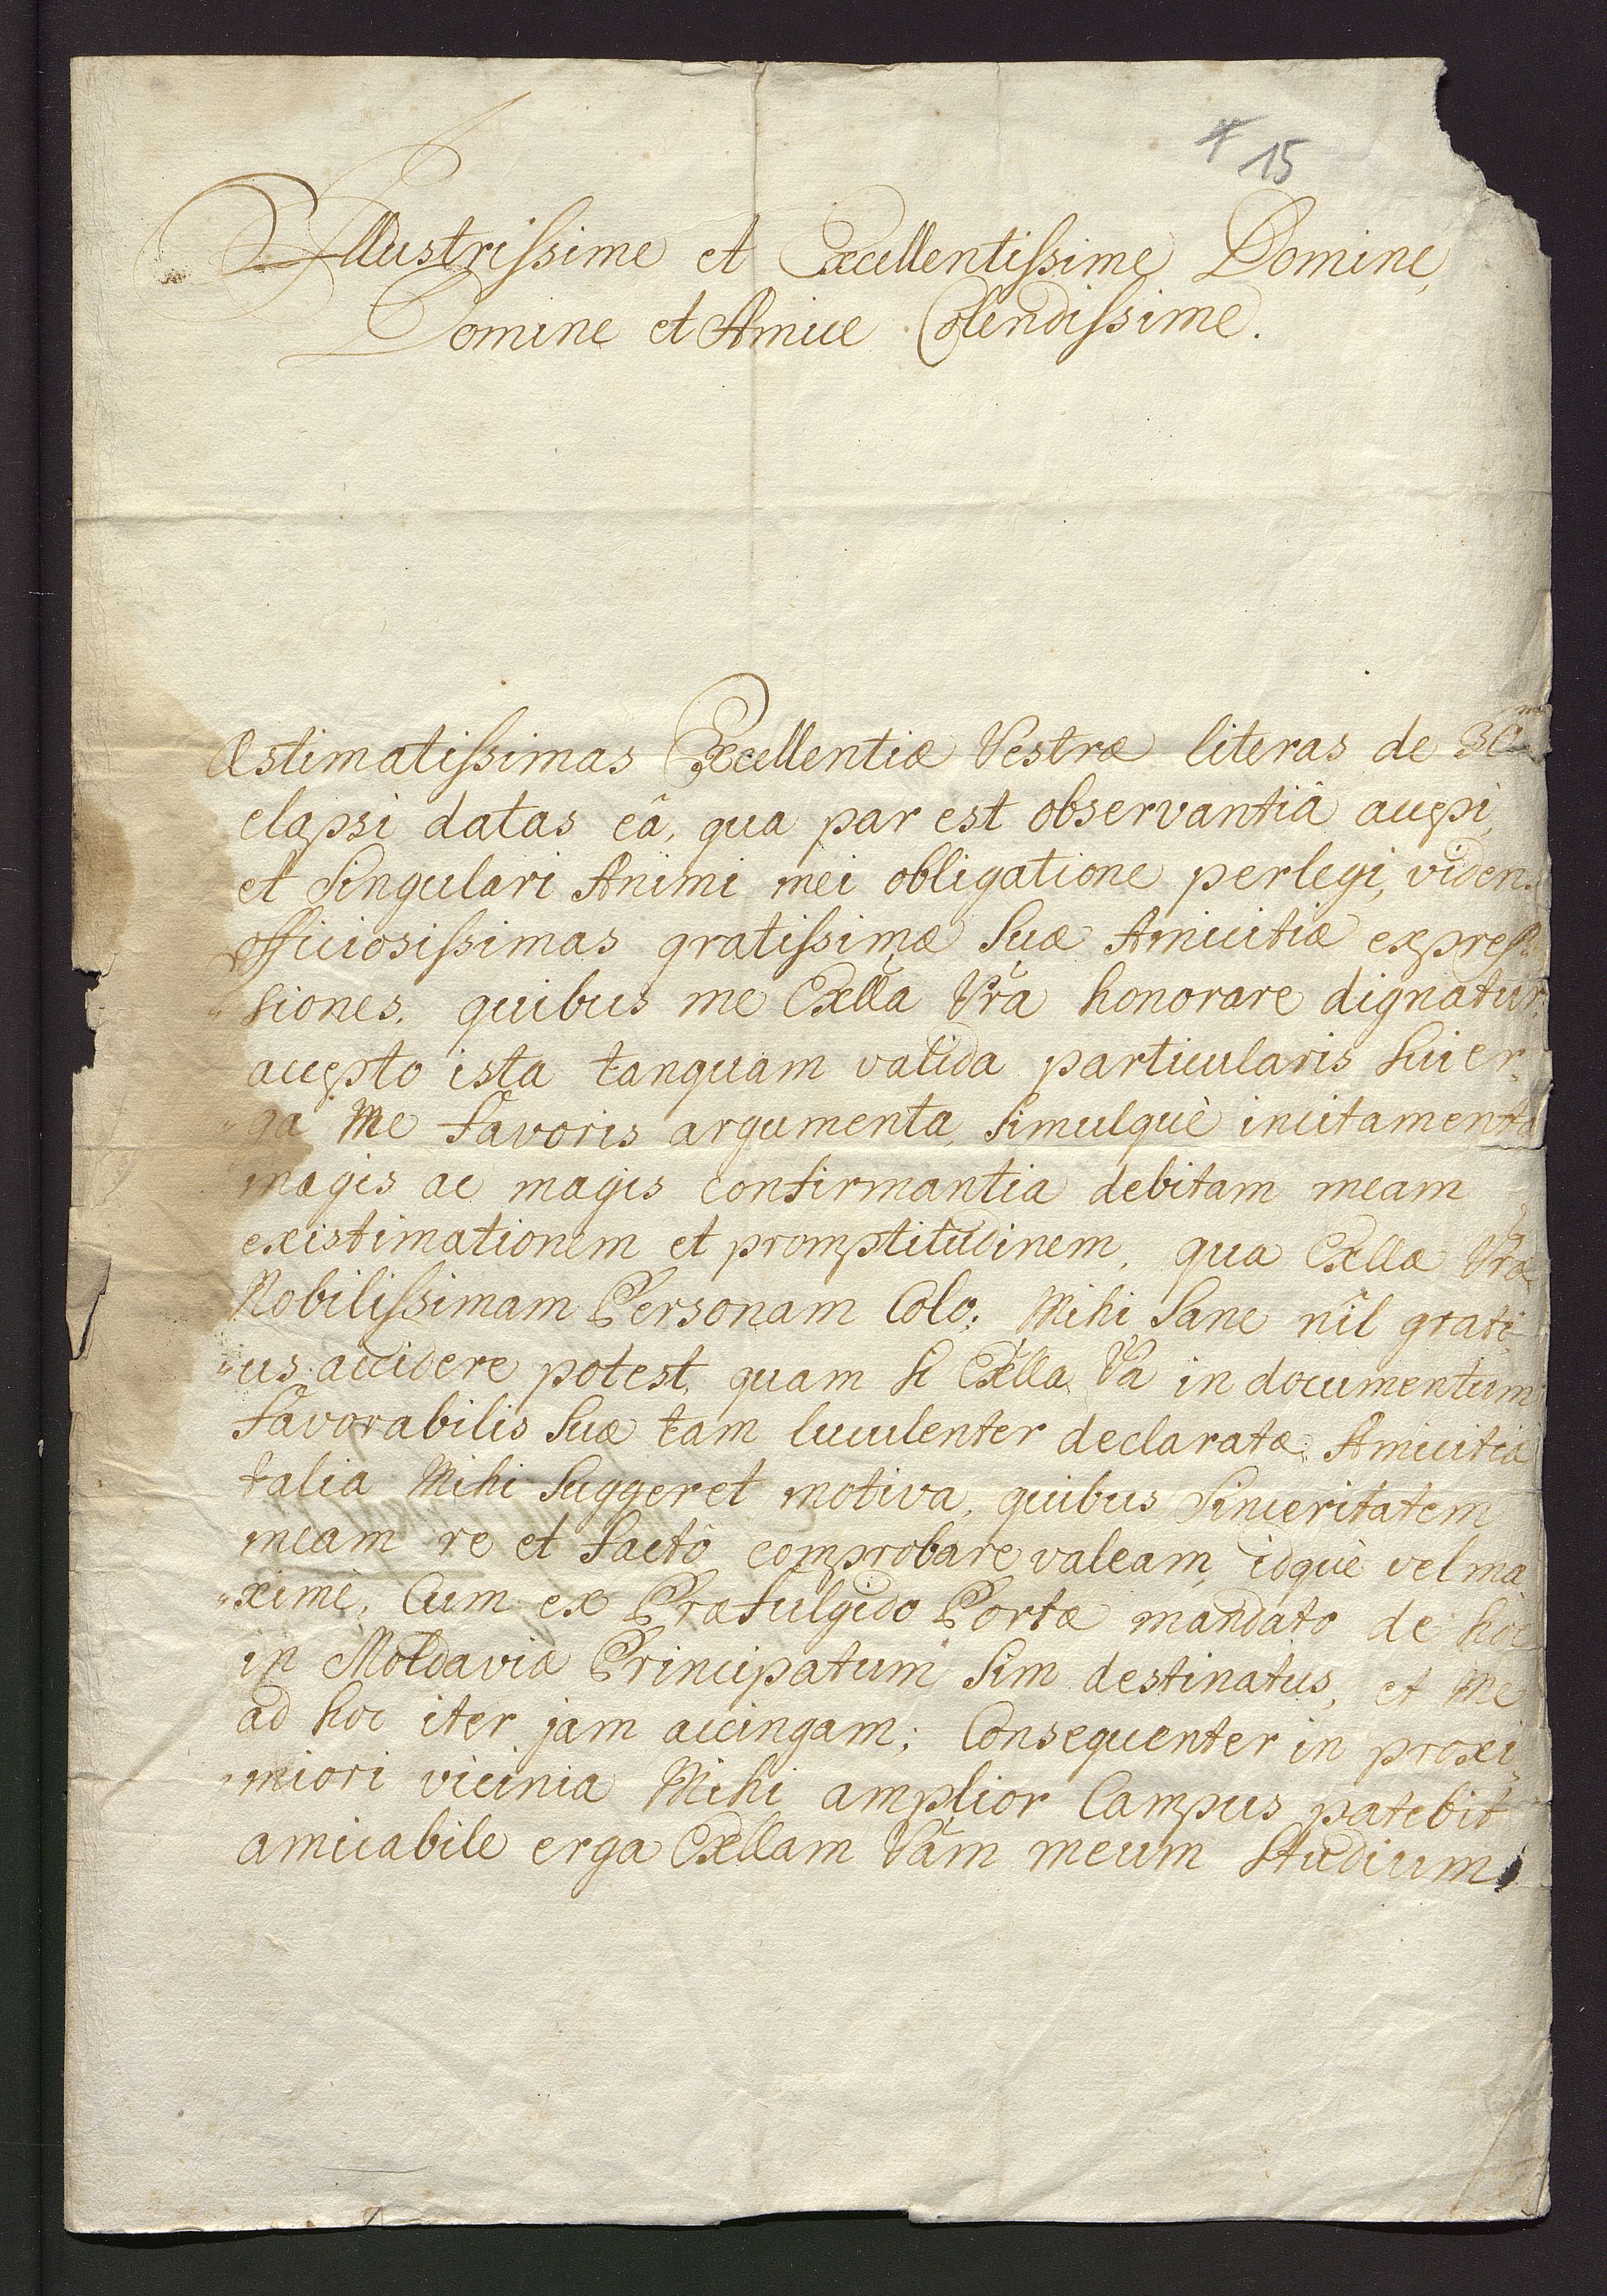 15
Illustrissime et Excellentissime Domine,
Domine et Amice Colendissime.
Æstimatissimas Excellentiæ Vestræ literas de 30ma
elapsi datas eâ, qua par est observantiâ accepi,
et Singulari Animi mei obligatione perlegi, videns
officiosissimas gratissimæ Suæ Amicitiæ expres-
"siones, quibus me Exllã Vrã honorare dignatur,
accepto ista tanquam valida particularis Sui er-
"ga Me favoris argumenta, Simulquè incitamenta
magis ac magis confirmantia debitam meam
existimationem et promptitudinem, qua Exllæ Vræ
Nobilissimam Personam Colo; Mihi Sane nil grati-
"us accidere potest, quam Si Exlla Va in documentum
favorabilis Suæ tam luculenter declaratæ Amicitiæ
talia Mihi Suggeret motiva, quibus Sinceritatem
meam re et factô comprobare valeam, idquè vel ma
"ximè, Cum ex Præfulgido Portæ mandato de hoc
in Moldaviæ Principatum Sim destinatus, et Me
ad hoc iter jam accingam; Consequenter in proxi-
"miori vicinia Mihi amplior Campus patebit
amicabile erga Exllam Vam meum Studium